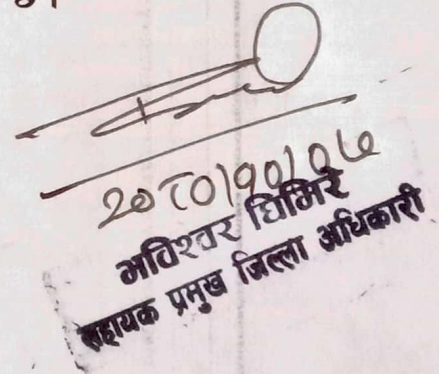 २०८०|१०|०७
भविश्वर घिमिरे
सहायक प्रमुख जिल्ला अधिकारी